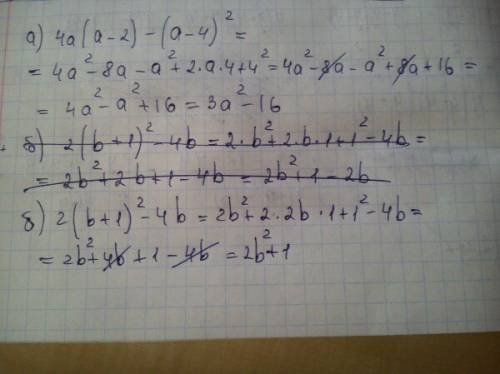 а) 4a(a-2)-(a-4)²=
= 4a²-8a-a²+2·a·4+4²=4a²-8a-a²+8a+16=
= 4a²-a²+16=3a²-16
б) 2(b+1)²-4b=2·b²+2·b·1+1²-4b=
= 2b²+2b+1-4b=2b²+1-2b
б) 2(b+1)²-4b=2b²+2·2b·1+1²-4b=
= 2b²+4b+1-4b=2b²+1